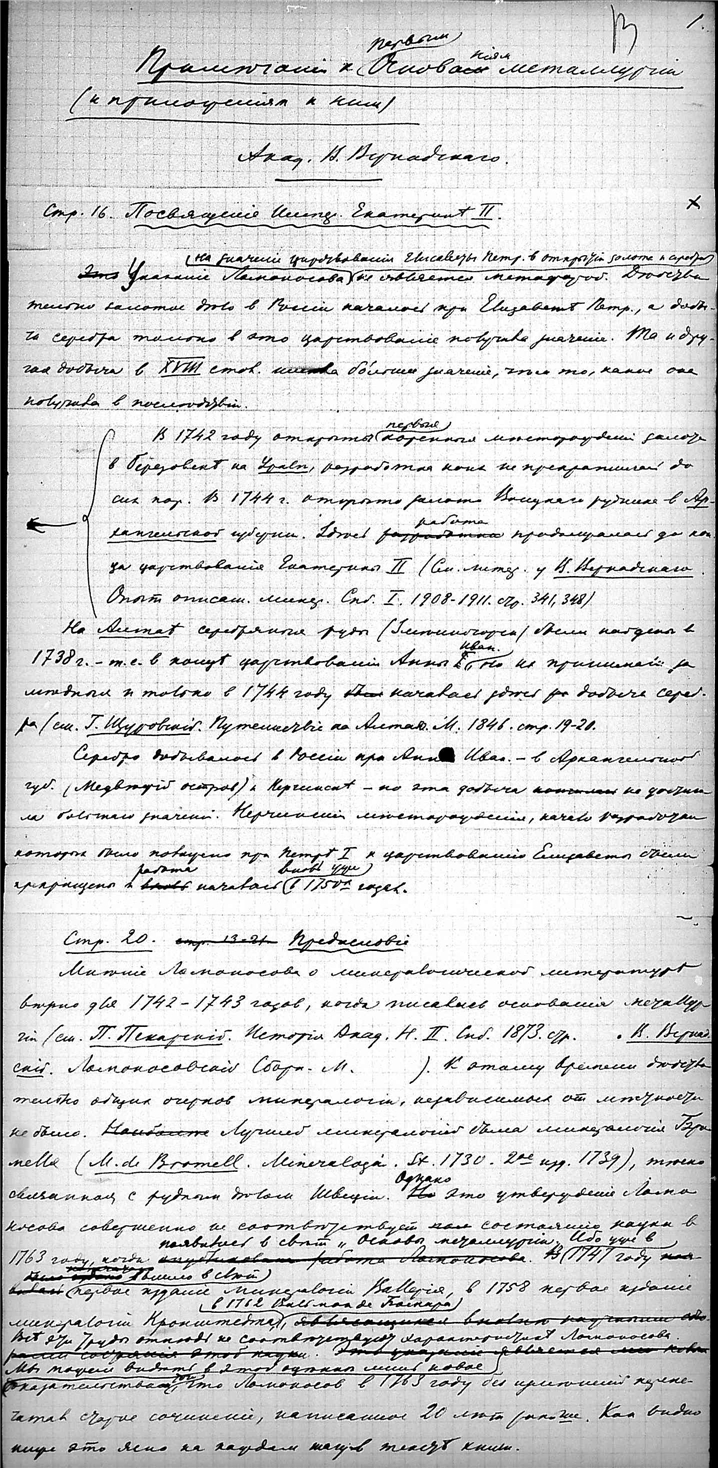 1.
первым
Примѣчанія к Основаніям металлургіи
(и приложеніям к ним)
Акад. В. Вернадскаго.
Стр. 16. Посвященіе Импер. Екатеринѣ II.
(на значеніе царствованія Елисаветы Петр. в открытіи золота и серебра)
Это Указаніе Ломоносова не является метафорой. Дѣйстви-
тельно золотое дѣло в Россіи началось при Елизаветѣ Петр., а добы-
ча серебра только в это царствованіе получила значеніе. Та и дру-
гая добыча в XVIII стол. имѣла большее значеніе, чѣм то, какое она
получила в послѣдствіи.
первыя
В 1742 году открыты коренныя мѣсторожденія золота
в Березовскѣ на Уралѣ, разработка коих не прекратилась до
сих пор. В 1744 г. открыто золото Воицкаго рудника в Ар-
хангельской губерніи. Здѣсь разработка работа продолжалась до кон-
ца царствованія Екатерины II (См. литер. у В. Вернадскаго.
Опыт описат. минер. Спб. I. 1908-1911. стр. 341, 348)
На Алтаѣ серебряныя руды (Змѣиногорск) были найдены в
1738 г. – т.е. в концѣ царствованія Анны Иван. но их принимали за
мѣдныя и только в 1744 году была началась здѣсь добыча сереб-
ра (см. Г. Щуровскій. Путешествіе по Алтаю. М. 1846. стр. 19-20.
Серебро добывалось в Россіи при Аннѣ Иван. – в Архангельской
губ. (Медвѣжій остров) и Нерчинскѣ – но эта добыча не достиг-
ла большого значенія. Нерчинскія мѣсторожденія, начало разработки
которых было положено при Петрѣ I к царствованію Елизаветы были
прекращены и работа вновь началась вновь уже в 1750х годах.
Стр. 20. стр. 13-21 Предисловіе
Мнѣніе Ломоносова о минералогической литературѣ
вѣрно для 1742-1743 годов, когда писались основанія металлур-
гіи (см. П. Пекарскій. Исторія Акад. Н. II. Спб. 1873. стр. . В. Вернад-
скій. Ломоносовскій Сборн. М. ). К этому времени дѣйстви-
тельно общих очерков минералогіи, независимых от мѣстности
не было. Наиболѣе Лучшей минералогіей была минералогія Бро-
мелля (M. de Bromell. Mineralogia. St. 1730. 2ое изд. 1739), тѣсно
связанная с рудным дѣлом Швеціи. Но Однако это утвержденіе Ломо-
носова совершенно не соотвѣтствует состоянію науки в
1763 году, когда появились в свѣт „Основы металлургіи“. Ибо уже в
опубликована работа Ломоносова. В 1747 году
вышло в свѣт первое изданіе минералогіи Валлерія, в 1758 первое изданіе
минералогіи Кронштедта,
Всѣ эти труды отнюдь не соотвѣтствуют характеристикѣ Ломоносова.
Мы можем видѣть в этой оцѣнкѣ лишь новое
доказательство того, что Ломоносов в 1763 году без измѣненій перепе-
чатал старое сочиненіе, написанное 20 лѣт раньше. Как видно
ниже это ясно на каждом шагу в текстѣ книги.